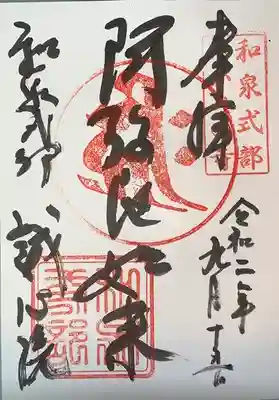 奉拝
和泉式部
令和二年九月十五日
阿弥陀如来
和泉式部
誠心院